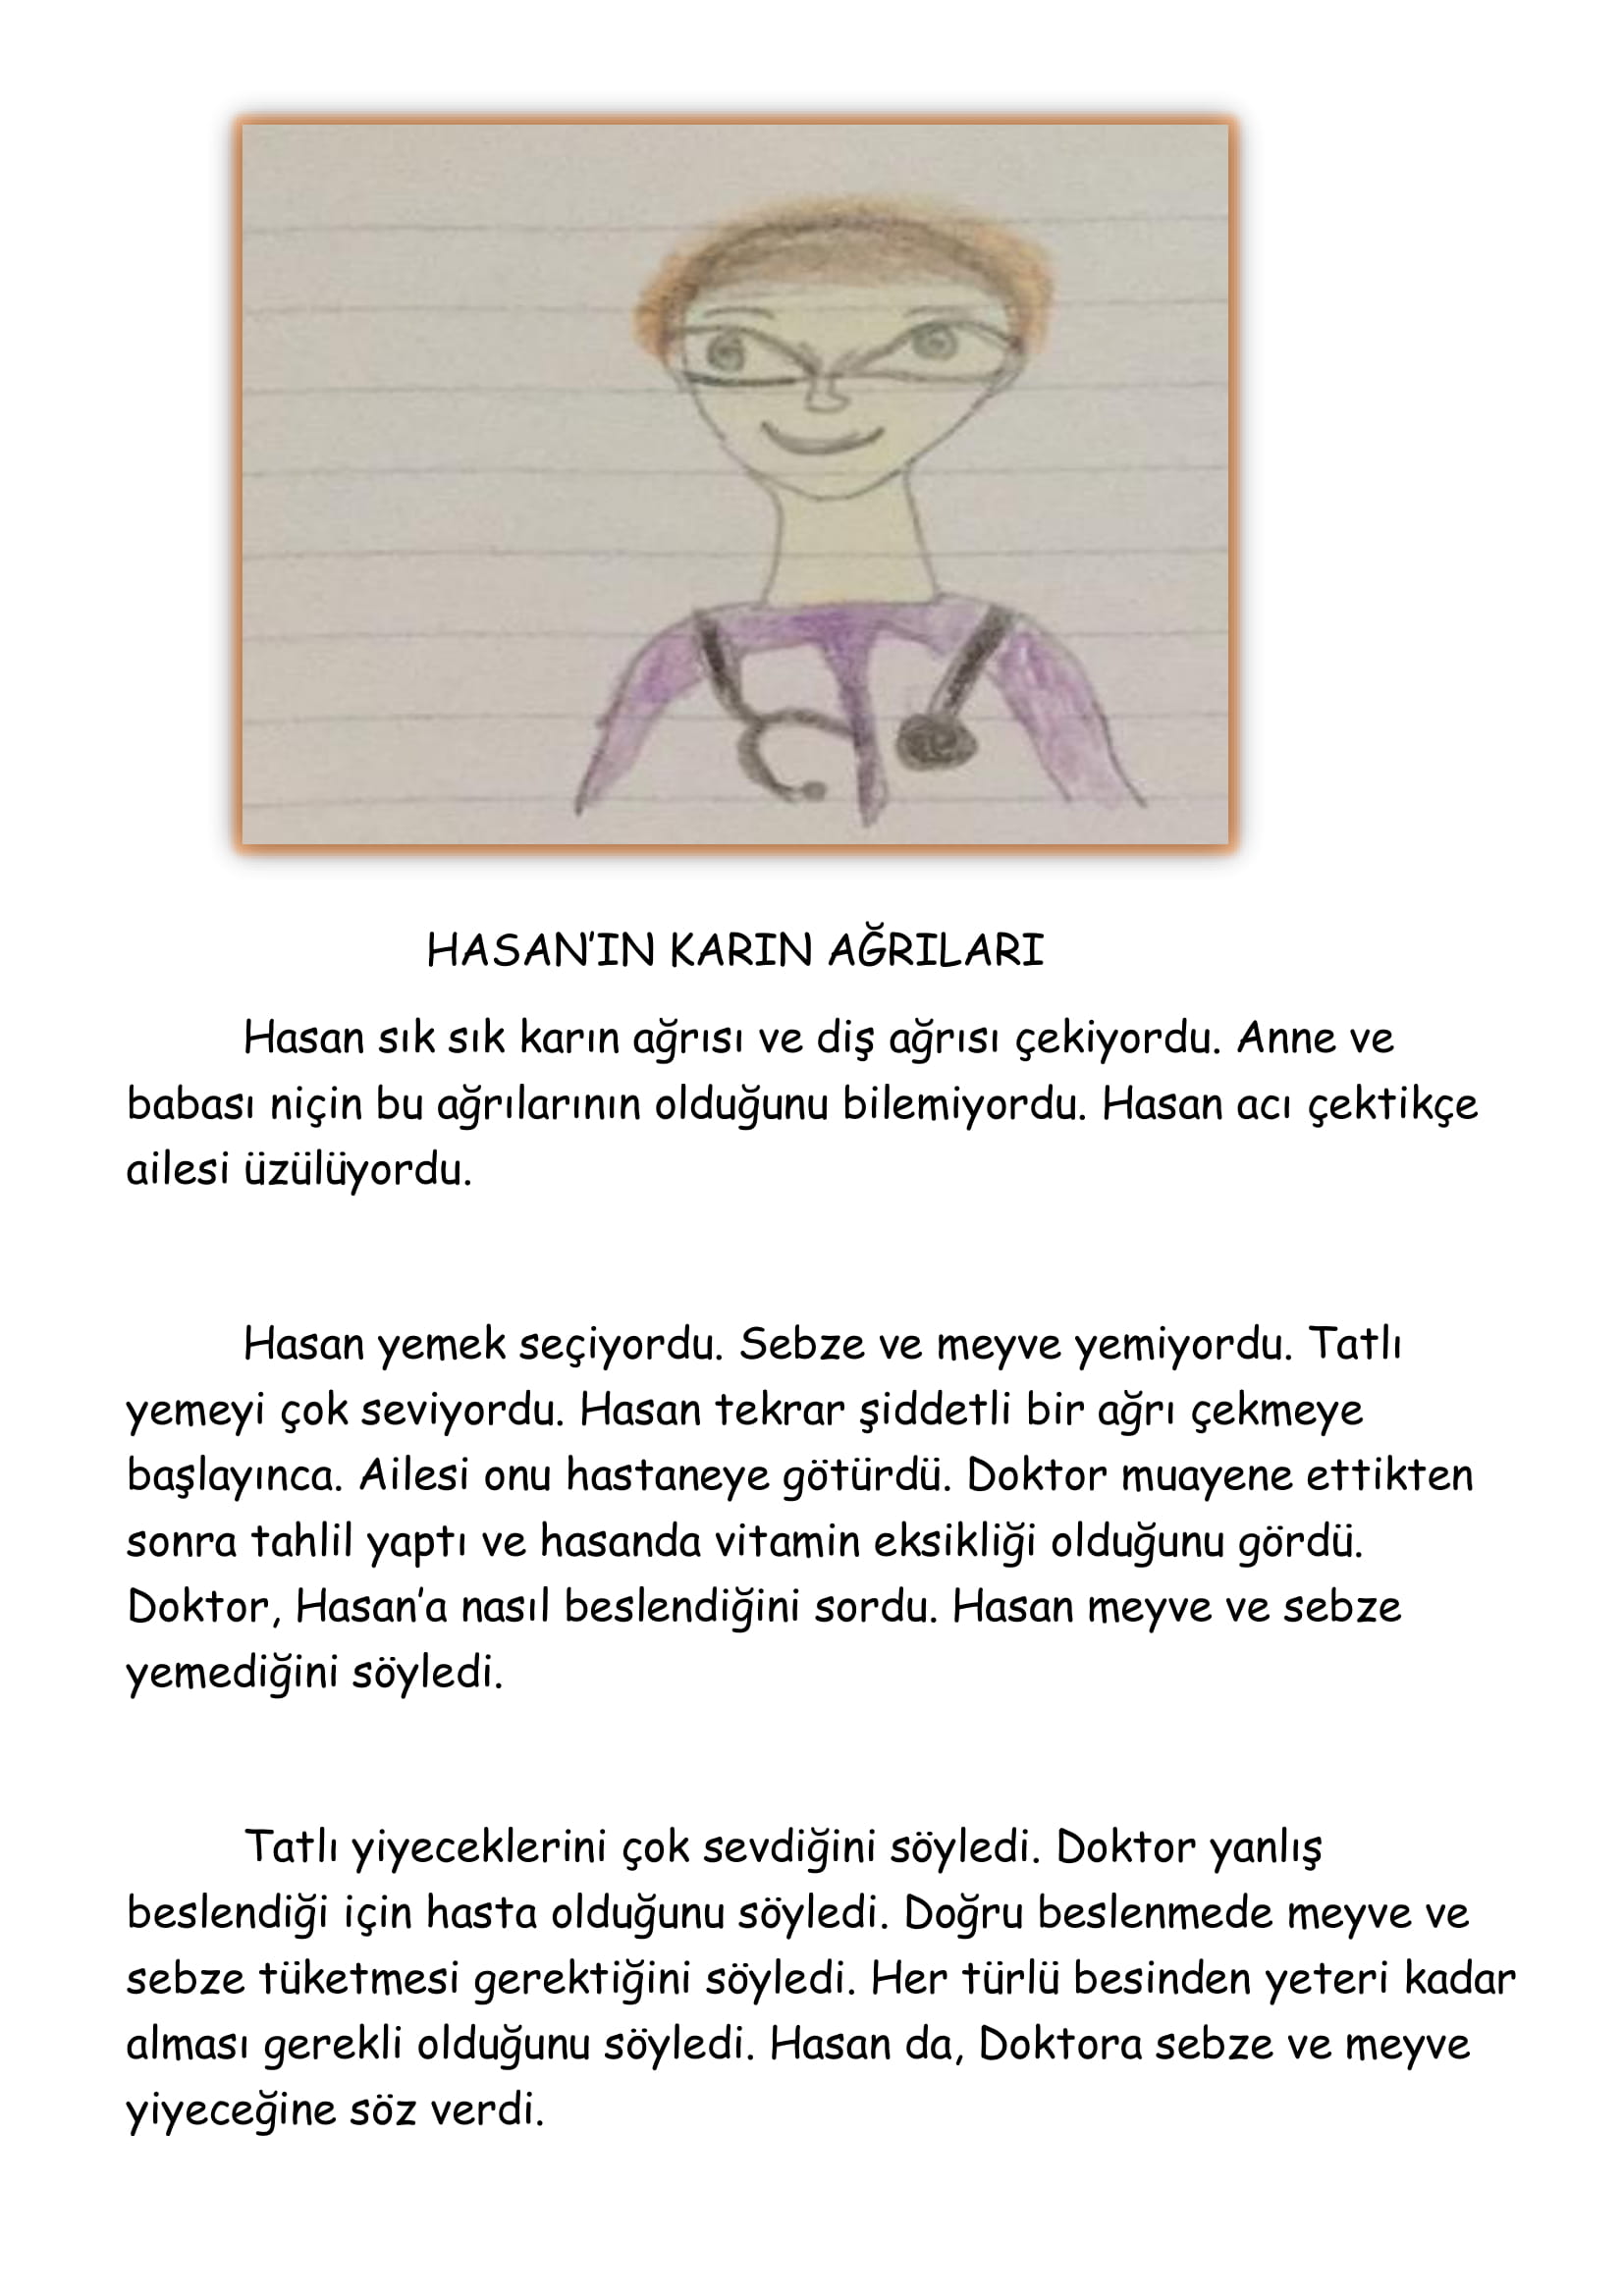 HASAN'IN KARIN AĞRILARI
Hasan sık sık karın ağrısı ve diş ağrısı çekiyordu. Anne ve
babası niçin bu ağrılarının olduğunu bilemiyordu. Hasan acı çektikçe
ailesi üzülüyordu.
Hasan yemek seçiyordu. Sebze ve meyve yemiyordu. Tatlı
yemeyi çok seviyordu. Hasan tekrar şiddetli bir ağrı çekmeye
başlayınca. Ailesi onu hastaneye götürdü. Doktor muayene ettikten
sonra tahlil yaptı ve hasanda vitamin eksikliği olduğunu gördü.
Doktor, Hasan'a nasıl beslendiğini sordu. Hasan meyve ve sebze
yemediğini söyledi.
Tatlı yiyeceklerini çok sevdiğini söyledi. Doktor yanlış
beslendiği için hasta olduğunu söyledi. Doğru beslenmede meyve ve
sebze tüketmesi gerektiğini söyledi. Her türlü besinden yeteri kadar
alması gerekli olduğunu söyledi. Hasan da, Doktora sebze ve meyve
yiyeceğine söz verdi.